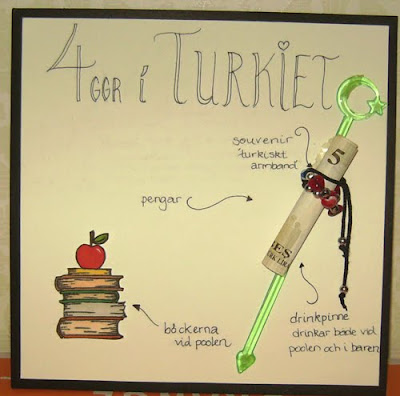 4 GGR i TURKIET
souvenir
turkiskt
armband
5
pengar
drinkpinne
drinkar både vid
poolen och i baren
böckerna
vid poolen